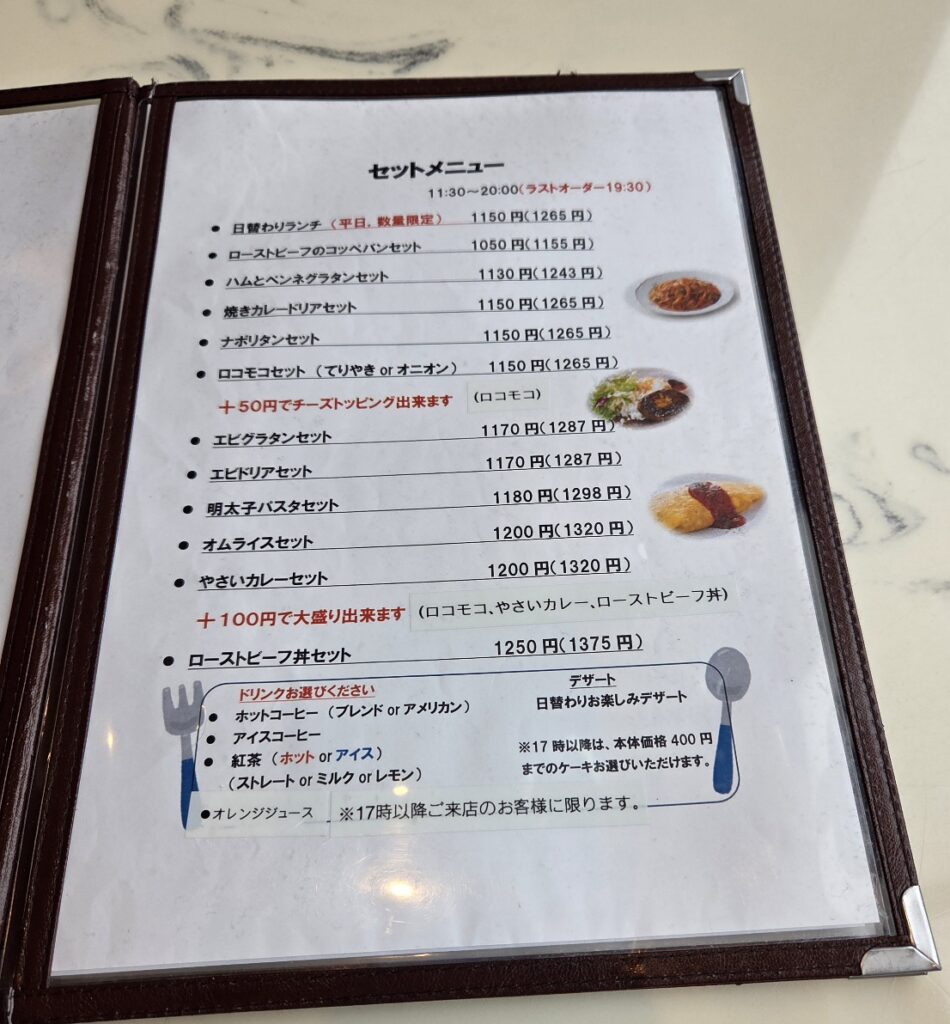 セットメニュー
11:30～20:00(ラストオーダー19:30)
● 日替わりランチ（平日, 数量限定） 1150円(1265円)
● ローストビーフのコッペパンセット 1050円(1155円)
● ハムとペンネグラタンセット 1130円(1243円)
● 焼きカレードリアセット 1150円(1265円)
● ナポリタンセット 1150円(1265円)
● ロコモコセット（てりやき or オニオン） 1150円(1265円)
＋50円でチーズトッピング出来ます (ロコモコ)
● エビグラタンセット 1170円(1287円)
● エビドリアセット 1170円(1287円)
● 明太子パスタセット 1180円(1298円)
● オムライスセット 1200円(1320円)
● やさいカレーセット 1200円(1320円)
＋100円で大盛り出来ます (ロコモコ、やさいカレー、ローストビーフ丼)
● ローストビーフ丼セット 1250円(1375円)
ドリンクお選びください
● ホットコーヒー（ブレンド or アメリカン）
● アイスコーヒー
● 紅茶（ホット or アイス）
（ストレート or ミルク or レモン）
●オレンジジュース
デザート
日替わりお楽しみデザート
※17時以降は、本体価格400円
までのケーキお選びいただけます。
※17時以降ご来店のお客様に限ります。